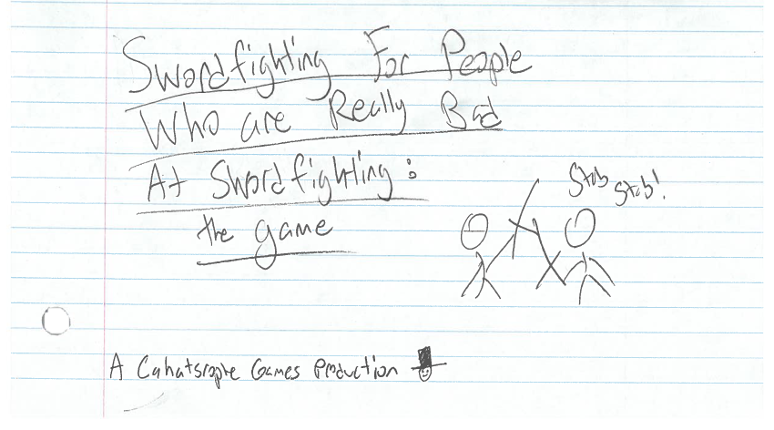 Swordfighting For People
Who are Really Bad
At Swordfighting:
the game
Stab
Stab!
A Cahatsrophe Games Production